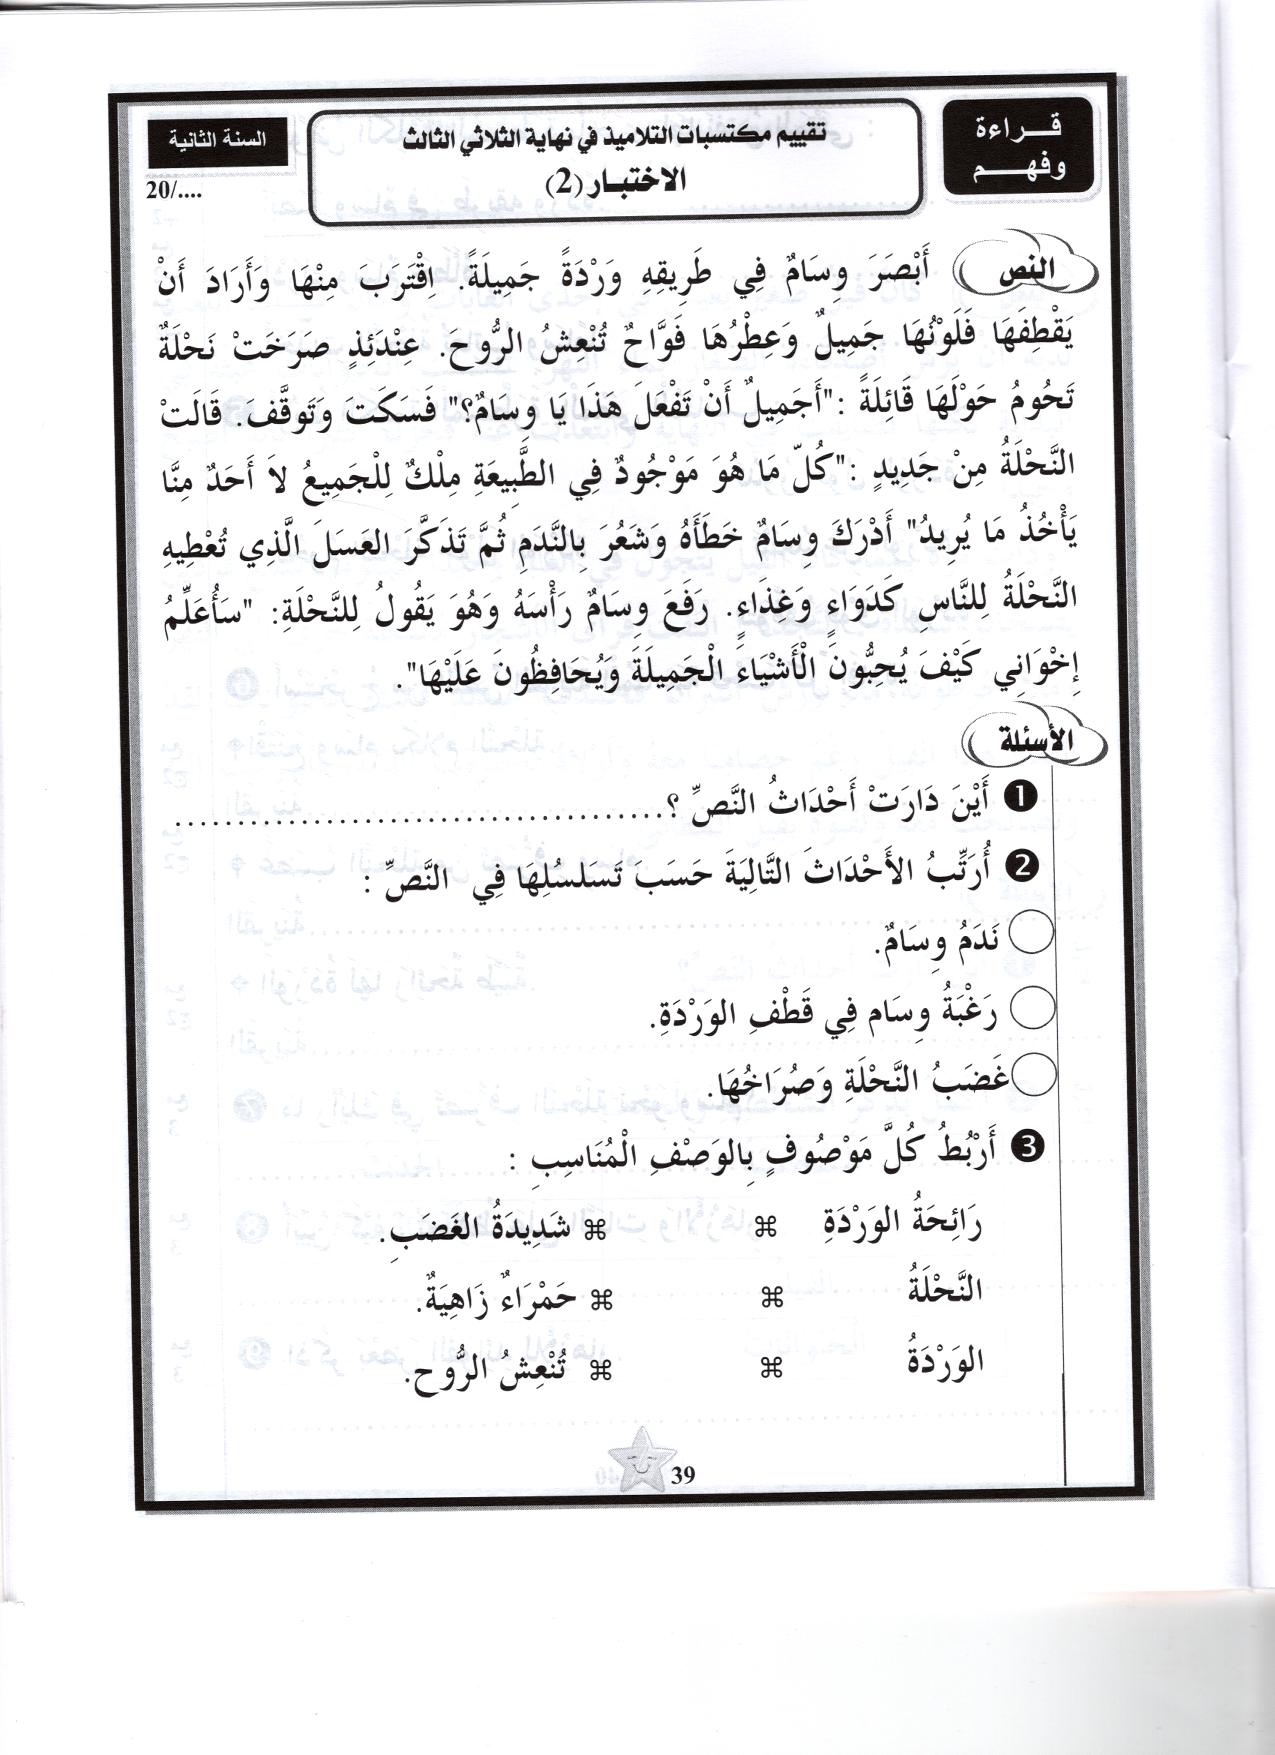 قــراءة
وفهــــم
تقييم مكتسبات التلاميذ في نهاية الثلاثي الثالث
الاختبـار (2)
السنة الثانية
20/....
النص
أَبْصَرَ وِسَامٌ فِي طَرِيقِهِ وَرْدَةً جَمِيلَةً. اِقْتَرَبَ مِنْهَا وَأَرَادَ أَنْ
يَقْطِفَهَا فَلَوْنُهَا جَمِيلٌ وَعِطْرُهَا فَوَّاحٌ تُنْعِشُ الرُّوحَ. عِنْدَئِذٍ صَرَخَتْ نَحْلَةٌ
تَحُومُ حَوْلَهَا قَائِلَةً :"أَجَمِيلٌ أَنْ تَفْعَلَ هَذَا يَا وِسَامٌ؟" فَسَكَتَ وَتَوقَّفَ. قَالَتْ
النَّحْلَةُ مِنْ جَدِيدٍ :"كُلّ مَا هُوَ مَوْجُودٌ فِي الطَّبِيعَةِ مِلْكٌ لِلْجَمِيعُ لاَ أَحَدٌ مِنَّا
يَأْخُذُ مَا يُرِيدُ" أَدْرَكَ وِسَامٌ خَطَأَهُ وَشَعُرَ بِالنَّدَمِ ثُمَّ تَذَكَّرَ العَسَلَ الَّذِي تُعْطِيهِ
النَّحْلَةُ لِلنَّاسِ كَدَوَاءٍ وَغِذَاءٍ. رَفَعَ وِسَامٌ رَأْسَهُ وَهُوَ يَقُولُ لِلنَّحْلَةِ: "سَأُعَلِّمُ
إِخْوَانِي كَيْفَ يُحِبُّونَ الْأَشْيَاءَ الْجَمِيلَةَ وَيُحَافِظُونَ عَلَيْهَا".
الأسئلة
❶ أَيْنَ دَارَتْ أَحْدَاثُ النَّصِّ ؟........................................
❷ أُرَتِّبُ الأَحْدَاثَ التَّالِيَةَ حَسَبَ تَسَلسُلِهَا فِي النَّصِّ :
نَدَمُ وِسَامٌ.
رَغْبَةُ وِسَام فِي قَطْفِ الوَرْدَةِ.
غَضَبُ النَّحْلَةِ وَصُرَاخُهَا.
❸ أَرْبُطُ كُلَّ مَوْصُوفٍ بِالوَصْفِ الْمُنَاسِبِ :
رَائِحَةُ الوَرْدَةِ ⌘ ⌘ شَدِيدَةُ الغَضَبِ.
النَّحْلَةُ ⌘ ⌘ حَمْرَاءٌ زَاهِيَةٌ.
الوَرْدَةُ ⌘ ⌘ تُنْعِشُ الرُّوح.
39